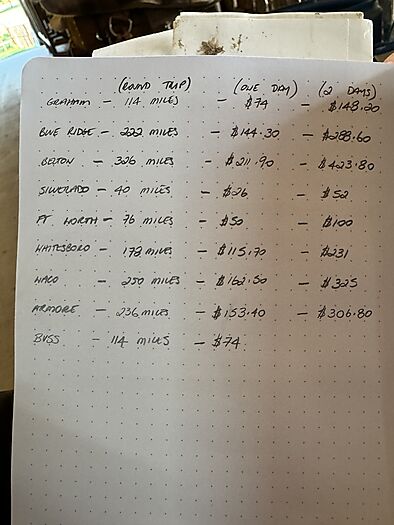 (ROUND TRIP) (ONE DAY) (2 DAYS)
GRAHAM - 114 MILES - $74 - $148.20
BLUE RIDGE - 222 MILES - $144.30 - $288.60
BELTON - 326 MILES - $211.90 - $423.80
SILVERADO - 40 MILES - $26 - $52
FT WORTH - 76 MILES - $50 - $100
WHITESBORO - 178 MILES - $115.70 - $231
WACO - 250 MILES - $162.50 - $325
ARMORE - 236 MILES - $153.40 - $306.80
BVSS - 114 MILES - $74